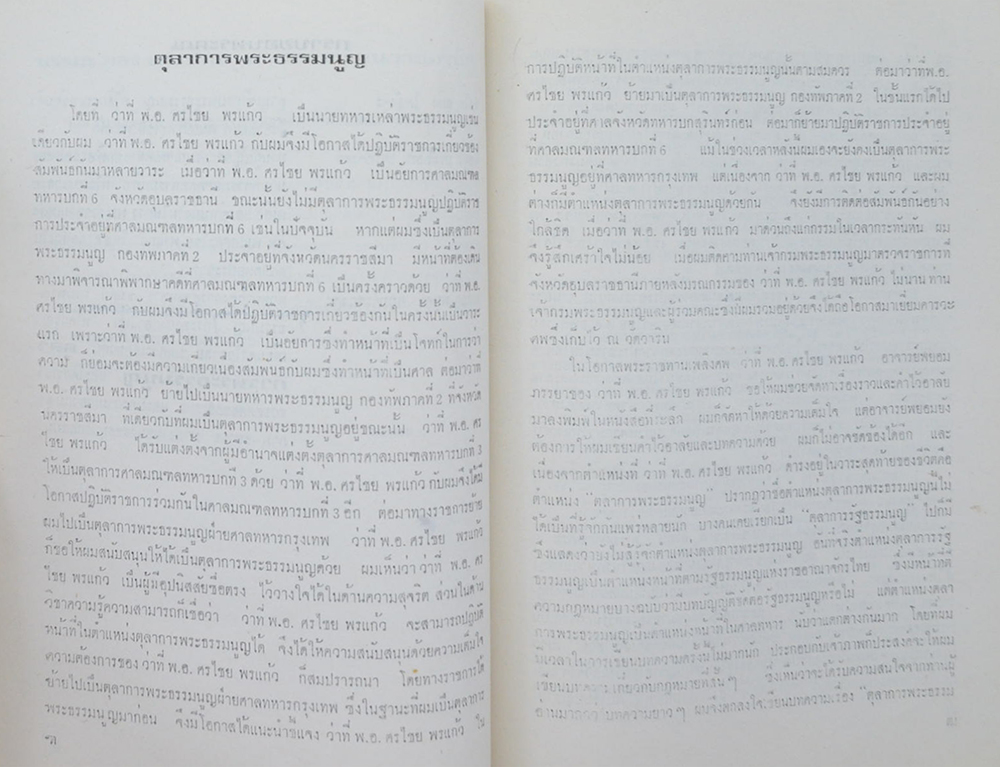 ตุลาการพระธรรมนูญ
โดยที่ ว่าที่ พ.อ. ศรไชย พรแก้ว เป็นนายทหารเหล่าพระธรรมนูญเช่น
เดียวกับผม ว่าที่ พ.อ. ศรไชย พรแก้ว กับผมจึงมีโอกาสได้ปฏิบัติราชการเกี่ยวข้อง
สัมพันธ์กันมาหลายวาระ เมื่อว่าที่ พ.อ. ศรไชย พรแก้ว เป็นอัยการศาลมณฑล
ทหารบกที่ 6 จังหวัดอุบลราชธานี ขณะนั้นยังไม่มีตุลาการพระธรรมนูญปฏิบัติราช
การประจำอยู่ที่ศาลมณฑลทหารบกที่ 6 เช่นในปัจจุบัน หากแต่ผมซึ่งเป็นตุลาการ
พระธรรมนูญ กองทัพภาคที่ 2 ประจำอยู่ที่จังหวัดนครราชสีมา มีหน้าที่ต้องเดิน
ทางมาพิจารณาพิพากษาคดีที่ศาลมณฑลทหารบกที่ 6 เป็นครั้งคราวด้วย ว่าที่ พ.อ.
ศรไชย พรแก้ว กับผมจึงมีโอกาสได้ปฏิบัติราชการเกี่ยวข้องกันในครั้งนั้นเป็นวาระ
แรก เพราะว่าที่ พ.อ. ศรไชย พรแก้ว เป็นอัยการซึ่งทำหน้าที่เป็นโจทก์ในการว่า
ความ ก็ย่อมจะต้องมีความเกี่ยวเนื่องสัมพันธ์กับผมซึ่งทำหน้าที่เป็นศาล ต่อมาว่าที่
พ.อ. ศรไชย พรแก้ว ย้ายไปเป็นนายทหารพระธรรมนูญ กองทัพภาคที่ 2 ที่จังหวัด
นครราชสีมา ที่เดียวกับที่ผมเป็นตุลาการพระธรรมนูญอยู่ขณะนั้น ว่าที่ พ.อ. ศร
ไชย พรแก้ว ได้รับแต่งตั้งจากผู้มีอำนาจแต่งตั้งตุลาการศาลมณฑลทหารบกที่ 3
ให้เป็นตุลาการศาลมณฑลทหารบกที่ 3 ด้วย ว่าที่ พ.อ. ศรไชย พรแก้ว กับผมจึงได้มี
โอกาสปฏิบัติราชการร่วมกันในศาลมณฑลทหารบกที่ 3 อีก ต่อมาทางราชการย้าย
ผมไปเป็นตุลาการพระธรรมนูญฝ่ายศาลทหารกรุงเทพ ว่าที่ พ.อ. ศรไชย พรแก้ว
ก็ขอให้ผมสนับสนุนให้ได้เป็นตุลาการพระธรรมนูญด้วย ผมเห็นว่า ว่าที่ พ.อ. ศร
ไชย พรแก้ว เป็นผู้มีอุปนิสสัยซื่อตรง ไว้วางใจได้ในด้านความสุจริต ส่วนในด้าน
วิชาความรู้ความสามารถก็เชื่อว่า ว่าที่ พ.อ. ศรไชย พรแก้ว จะสามารถปฏิบัติ
หน้าที่ในตำแหน่งตุลาการพระธรรมนูญได้ จึงได้ให้ความสนับสนุนด้วยความเต็มใจ
ความต้องการของ ว่าที่ พ.อ. ศรไชย พรแก้ว ก็สมปรารถนา โดยทางราชการได้
ย้ายไปเป็นตุลาการพระธรรมนูญฝ่ายศาลทหารกรุงเทพ ซึ่งในฐานะที่ผมเป็นตุลาการ
พระธรรมนูญมาก่อน จึงมีโอกาสได้แนะนำชี้แจง ว่าที่ พ.อ. ศรไชย พรแก้ว ใน
การปฏิบัติหน้าที่ในตำแหน่งตุลาการพระธรรมนูญนั้นตามสมควร ต่อมาว่าที่ พ.อ.
ศรไชย พรแก้ว ย้ายมาเป็นตุลาการพระธรรมนูญ กองทัพภาคที่ 2 ในชั้นแรกได้ไป
ประจำอยู่ที่ศาลจังหวัดทหารบกสุรินทร์ก่อน ต่อมาก็ย้ายมาปฏิบัติราชการประจำอยู่
ที่ศาลมณฑลทหารบกที่ 6 แม้ในช่วงเวลาหลังนี้ผมเองจะยังคงเป็นตุลาการพระ
ธรรมนูญอยู่ที่ศาลทหารกรุงเทพ แต่เนื่องจาก ว่าที่ พ.อ. ศรไชย พรแก้ว และผม
ต่างก็มีตำแหน่งตุลาการพระธรรมนูญด้วยกัน จึงยังมีการติดต่อสัมพันธ์กันอย่าง
ใกล้ชิด เมื่อว่าที่ พ.อ. ศรไชย พรแก้ว มาด่วนถึงแก่กรรมในเวลากระทันหัน ผม
จึงรู้สึกเศร้าใจไม่น้อย เมื่อผมติดตามท่านเจ้ากรมพระธรรมนูญมาตรวจราชการที่
จังหวัดอุบลราชธานีภายหลังมรณกรรมของ ว่าที่ พ.อ. ศรไชย พรแก้ว ไม่นาน ท่าน
เจ้ากรมพระธรรมนูญและผู้ร่วมคณะซึ่งมีผมรวมอยู่ด้วยจึงได้ถือโอกาสมาเยี่ยมคารวะ
ศพซึ่งเก็บไว้ ณ วัดวาริน
ในโอกาสพระราชทานเพลิงศพ ว่าที่ พ.อ. ศรไชย พรแก้ว อาจารย์พยอม
ภรรยาของ ว่าที่ พ.อ. ศรไชย พรแก้ว ขอให้ผมช่วยจัดหาเรื่องราวและคำไว้อาลัย
มาลงพิมพ์ในหนังสือที่ระลึก ผมก็จัดหาให้ด้วยความเต็มใจ แต่อาจารย์พยอมยัง
ต้องการให้ผมเขียนคำไว้อาลัยและบทความด้วย ผมก็ไม่อาจขัดข้องได้อีก และ
เนื่องจากตำแหน่งที่ ว่าที่ พ.อ. ศรไชย พรแก้ว ดำรงอยู่ในวาระสุดท้ายของชีวิตคือ
ตำแหน่ง "ตุลาการพระธรรมนูญ" ปรากฏว่าชื่อตำแหน่งตุลาการพระธรรมนูญนี้ไม่
ได้เป็นที่รู้จักกันแพร่หลายนัก บางคนเคยเรียกเป็น "ตุลาการรัฐธรรมนูญ" ไปก็มี
ซึ่งแสดงว่ายังไม่รู้จักตำแหน่งตุลาการพระธรรมนูญ อันที่จริงตำแหน่งตุลาการรัฐ
ธรรมนูญเป็นตำแหน่งหน้าที่ตามรัฐธรรมนูญแห่งราชอาณาจักรไทย ซึ่งมีหน้าที่ตี
ความกฎหมายบางฉบับว่ามีบทบัญญัติขัดต่อรัฐธรรมนูญหรือไม่ แต่ตำแหน่งตุลา
การพระธรรมนูญเป็นตำแหน่งหน้าที่ในศาลทหาร นับว่าแตกต่างกันมาก โดยที่ผม
มีเวลาในการเขียนบทความครั้งนี้ไม่มากนัก ประกอบกับเจ้าภาพก็ประสงค์จะให้ผม
เขียนบทความเกี่ยวกับกฎหมายที่สั้น ๆ ซึ่งเห็นว่าจะได้รับความสนใจจากท่านผู้
อ่านมากกว่าบทความยาว ๆ ผมจึงตกลงใจเขียนบทความเรื่อง "ตุลาการพระธรรม